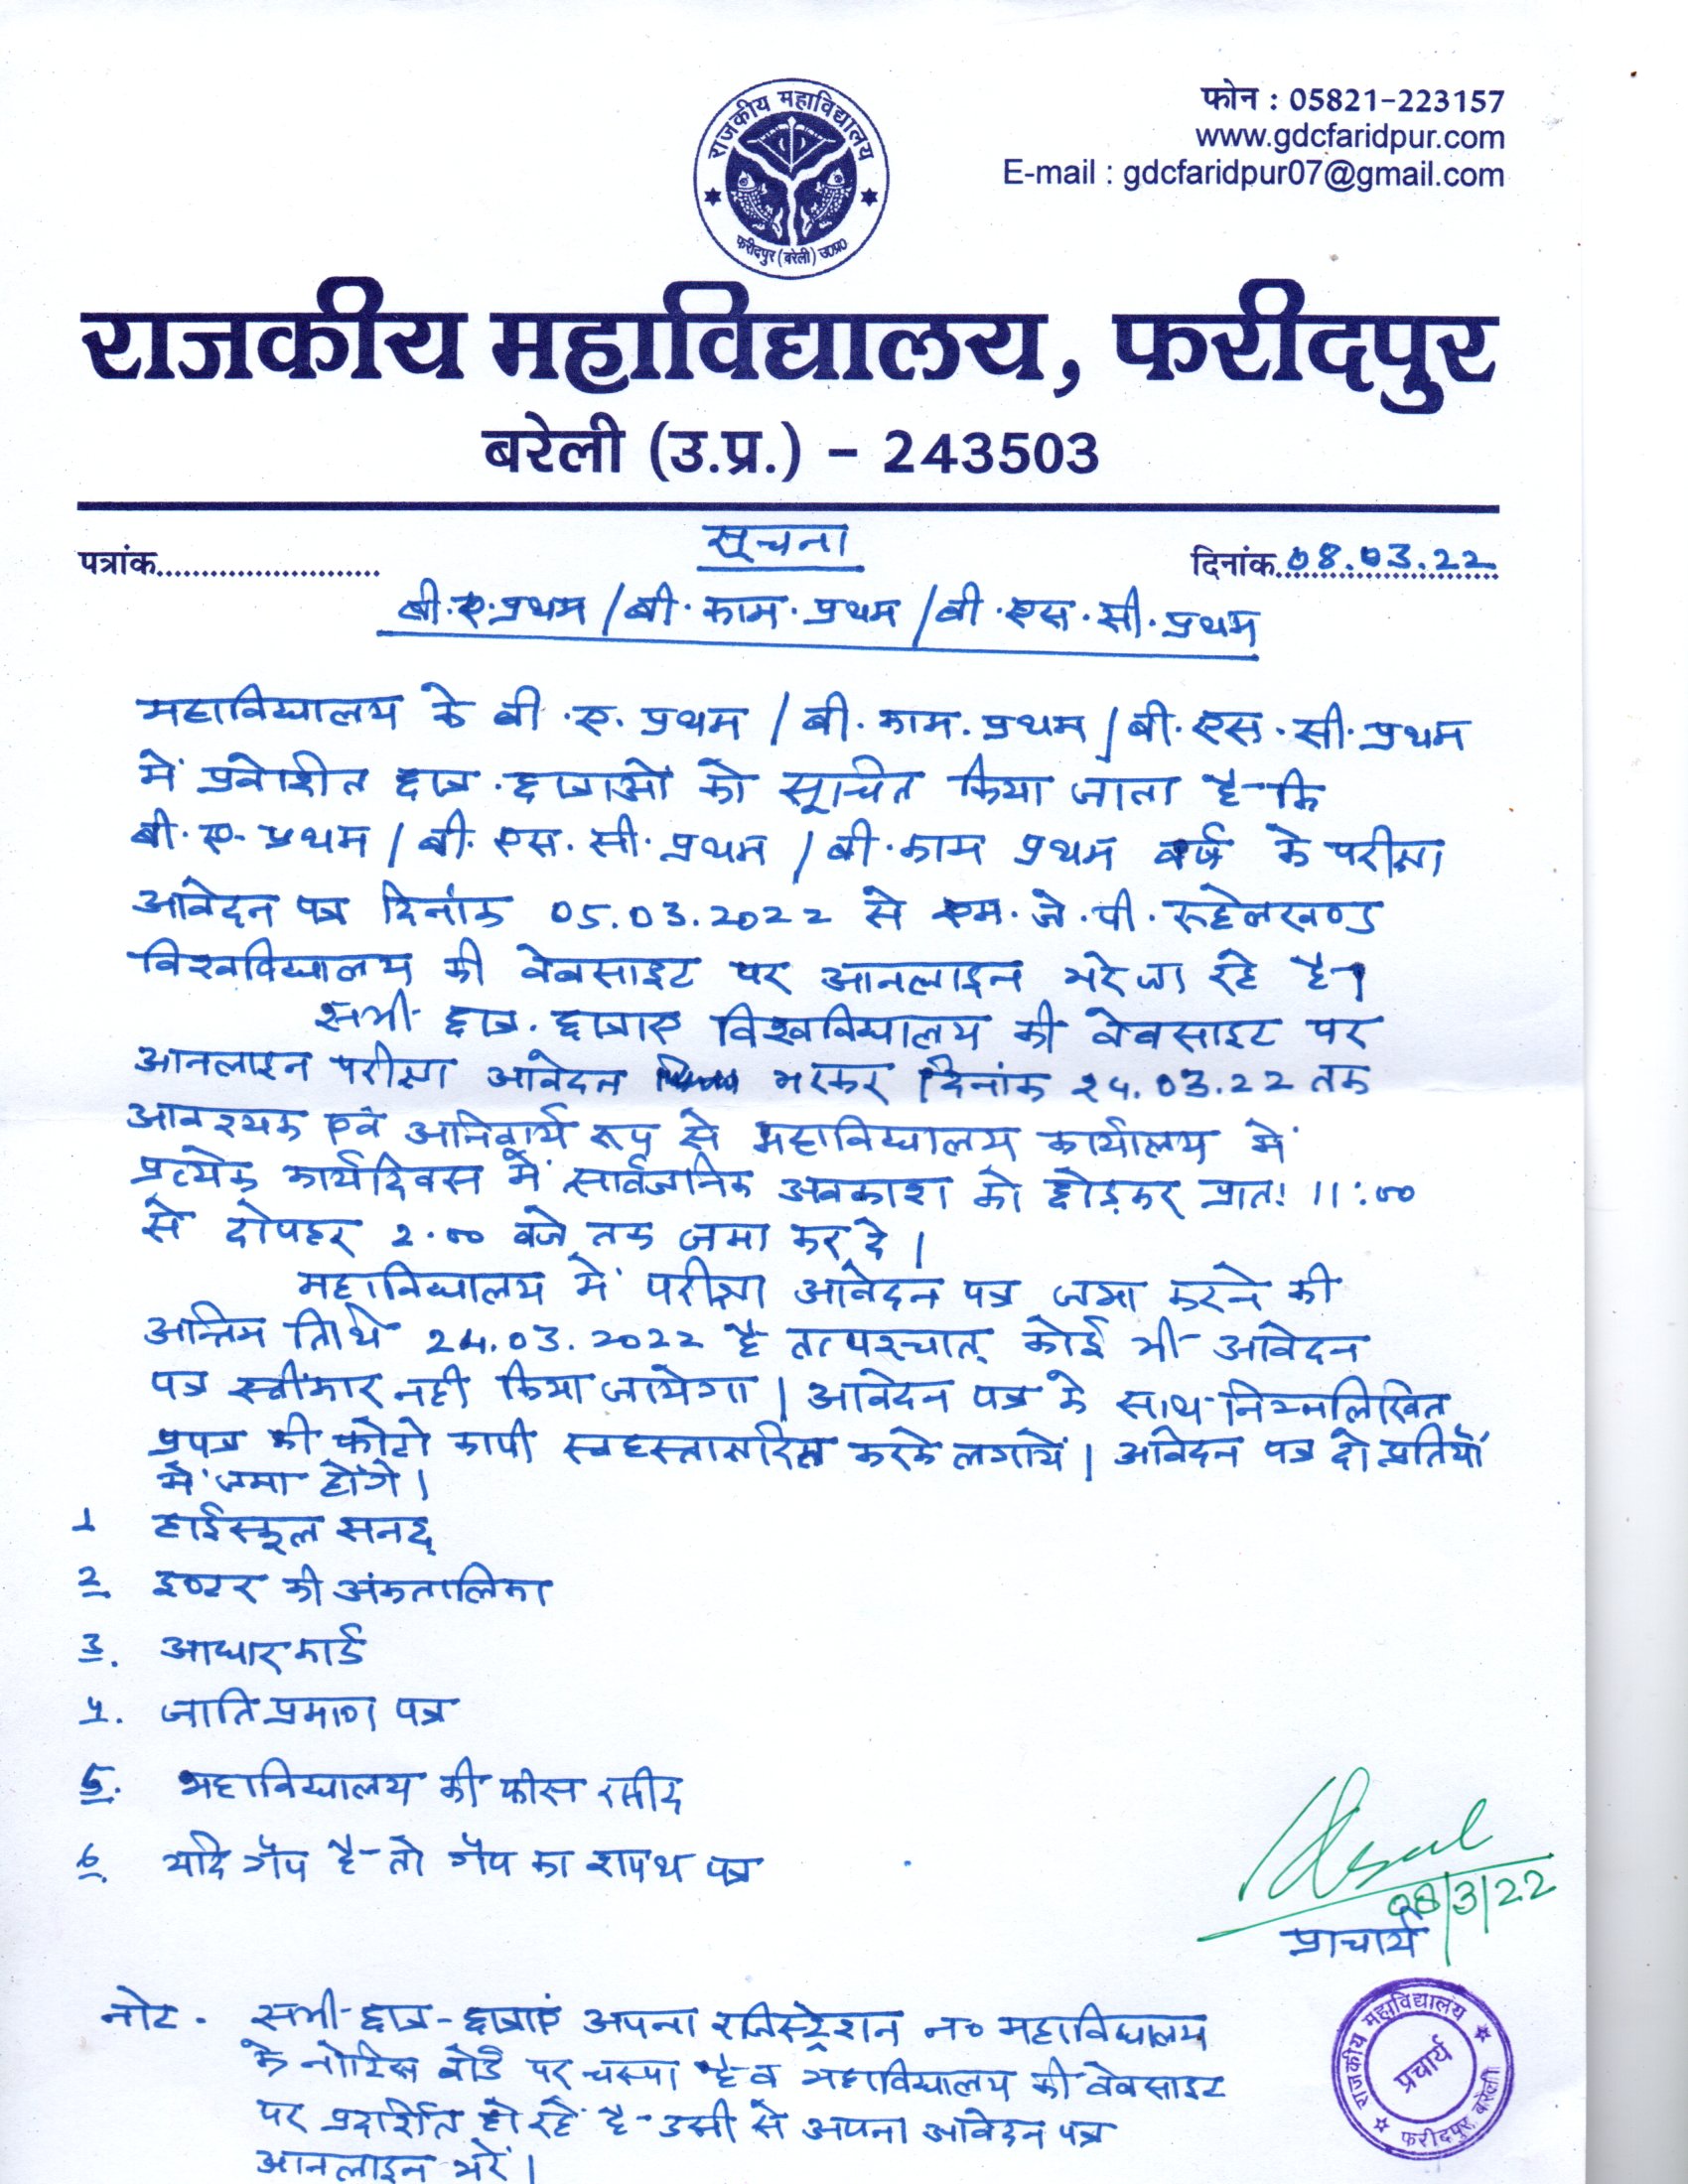 राजकीय महाविद्यालय
फरीदपुर (बरेली) उ०प्र०
फोन : 05821-223157
www.gdcfaridpur.com
E-mail : gdcfaridpur07@gmail.com
राजकीय महाविद्यालय, फरीदपुर
बरेली (उ.प्र.) - 243503
सूचना
पत्रांक......................... दिनांक 08.03.22
बी.ए.प्रथम / बी.काम.प्रथम / बी.एस.सी.प्रथम
महाविद्यालय के बी.ए. प्रथम / बी.काम.प्रथम / बी.एस.सी.प्रथम
में प्रवेशीत छात्र.छात्राओं को सूचित किया जाता है कि
बी.ए. प्रथम / बी.एस.सी.प्रथम / बी.काम प्रथम वर्ष के परीक्षा
आवेदन पत्र दिनांक 05.03.2022 से एम.जे.पी. रूहेलखण्ड
विश्वविद्यालय की वेबसाइट पर आनलाइन भरे जा रहे है।
सभी छात्र.छात्राए विश्वविद्यालय की वेबसाइट पर
आनलाइन परीक्षा आवेदन भरकर दिनांक 24.03.22 तक
आवश्यक एवं अनिवार्य रूप से महाविद्यालय कार्यालय में
प्रत्येक कार्यदिवस में सार्वजनिक अवकाश को छोड़कर प्रातः 11:00
से दोपहर 2.00 बजे तक जमा कर दे।
महाविद्यालय में परीक्षा आवेदन पत्र जमा करने की
अन्तिम तिथि 24.03.2022 है तत्पश्चात् कोई भी आवेदन
पत्र स्वीकार नही किया जायेगा। आवेदन पत्र के साथ निम्नलिखित
प्रपत्र की फोटो कापी स्वहस्ताक्षरित करके लगाये। आवेदन पत्र दो प्रतियों
में जमा होंगे।
1 हाईस्कूल सनद
2. इण्टर की अंकतालिका
3. आधार कार्ड
4. जाति प्रमाण पत्र
5. महाविद्यालय की फीस रसीद
6. यदि गैप है तो गैप का शपथ पत्र
08/3/22
प्राचार्य
राजकीय महाविद्यालय
प्रचार्य
फरीदपुर, बरेली
नोट. सभी छात्र-छात्राएं अपना रजिस्ट्रेशन न० महाविद्यालय
के नोटिस बोर्ड पर चस्पा है व महाविद्यालय की वेबसाइट
पर प्रदर्शित हो रहे है उसी से अपना आवेदन पत्र
आनलाइन भरें।